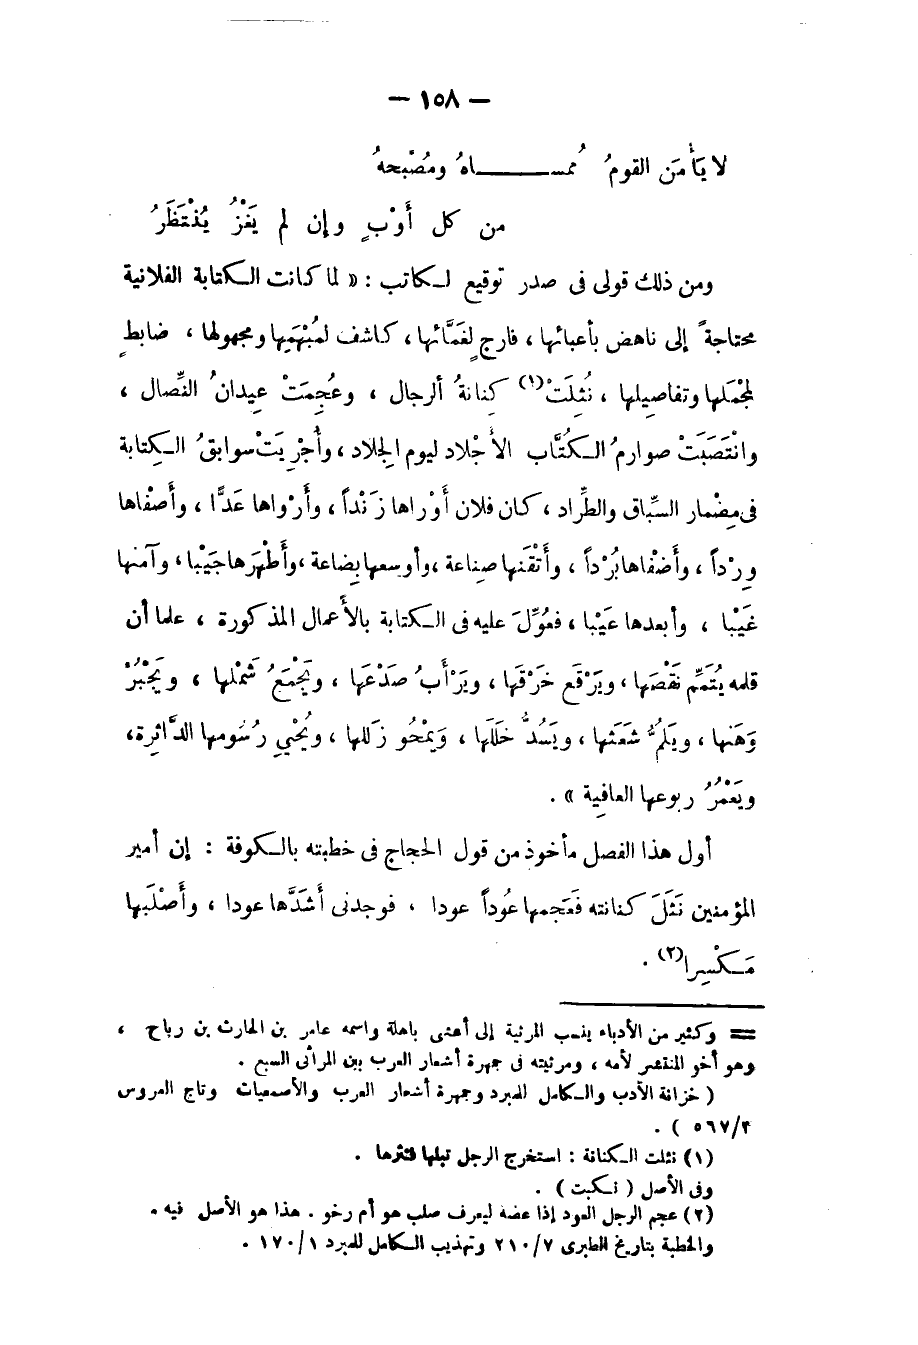 — ١٥٨ —
لا يَأْمَن القومُ مُمْســـــــاهُ ومُصْبحهُ
من كل أَوْبٍ وإن لم يَغْزُ يُنْتَظَرُ
ومن ذلك قولى فى صدر توقيع لكاتب : « لما كانت الكتابة الفلانية
محتاجةً إلى ناهض بأعبائها ، فارج لِغَمَّائها ، كاشف لمُبْهَمِها ومجهولها ، ضابطٍ
لمُجْمَلها وتفاصيلها ، نُثِلَتْ(١) كِنانةُ الرجال ، وعُجِمَتْ عِيدانُ النِّصال ،
وانْتَصَبَتْ صوارمُ الكُتَّاب الأجْلاد ليوم الجِلاد ، وأُجْرِيَتْ سوابقُ الكِتابة
فى مِضْمار السِّباق والطِّراد ، كان فلان أَوْراها زَنْداً ، وأَرْواها عَدًّا ، وأَصْفاها
وِرْداً ، وأَضْفاها بُرْداً ، وأَتْقَنها صِناعة ، وأوسعها بِضاعة ، وأَطْهَرها جَيْبا ، وآمنها
غَيْبا ، وأبعدها عَيْبا ، فعُوِّلَ عليه فى الكتابة بالأَعمال المذكورة ، علما أن
قلمه يُتَمِّم نَقْصَها ، ويَرْقَع خَرْقَها ، ويَرْأَبُ صَدْعَها ، ويَجْمَعُ شَمْلها ، ويَجْبُرُ
وَهَنها ، ويَلُمُّ شَعَثها ، ويَسُدُّ خَلَلَها ، وَيَمْحُو زَللها ، ويُحْيِي رُسُومها الدَّاثِرة ،
ويَعْمُرُ ربوعها العافِية » .
أول هذا الفصل مأخوذ من قول الحجاج فى خطبته بالكوفة : إن أمير
المؤمنين نَثَلَ كنانته فعَجمها عُوداً عودا ، فوجدنى أَشَدَّها عودا ، وأَصْلَبها
مَكْسِرا(٢) .
= وكثير من الأدباء ينسب المرثية إلى أعشى باهلة واسمه عامر بن الحارث بن رباح ،
وهو أخو المنتشر لأمه ، ومرثيته فى جمهرة أشعار العرب بين المراثى السبع .
( خزانة الأدب والكامل للمبرد وجمهرة أشعار العرب والأصمعيات وتاج العروس
٥٦٧/٣ ) .
(١) نثلت الكنانة : استخرج الرجل نبلها فنثرها .
وفى الأصل ( نكبت ) .
(٢) عجم الرجل العود إذا عضه ليعرف صلب هو أم رخو . هذا هو الأصل فيه .
والخطبة بتاريخ الطبرى ٢١٠/٧ وتهذيب الكامل للمبرد ١٧٠/١ .